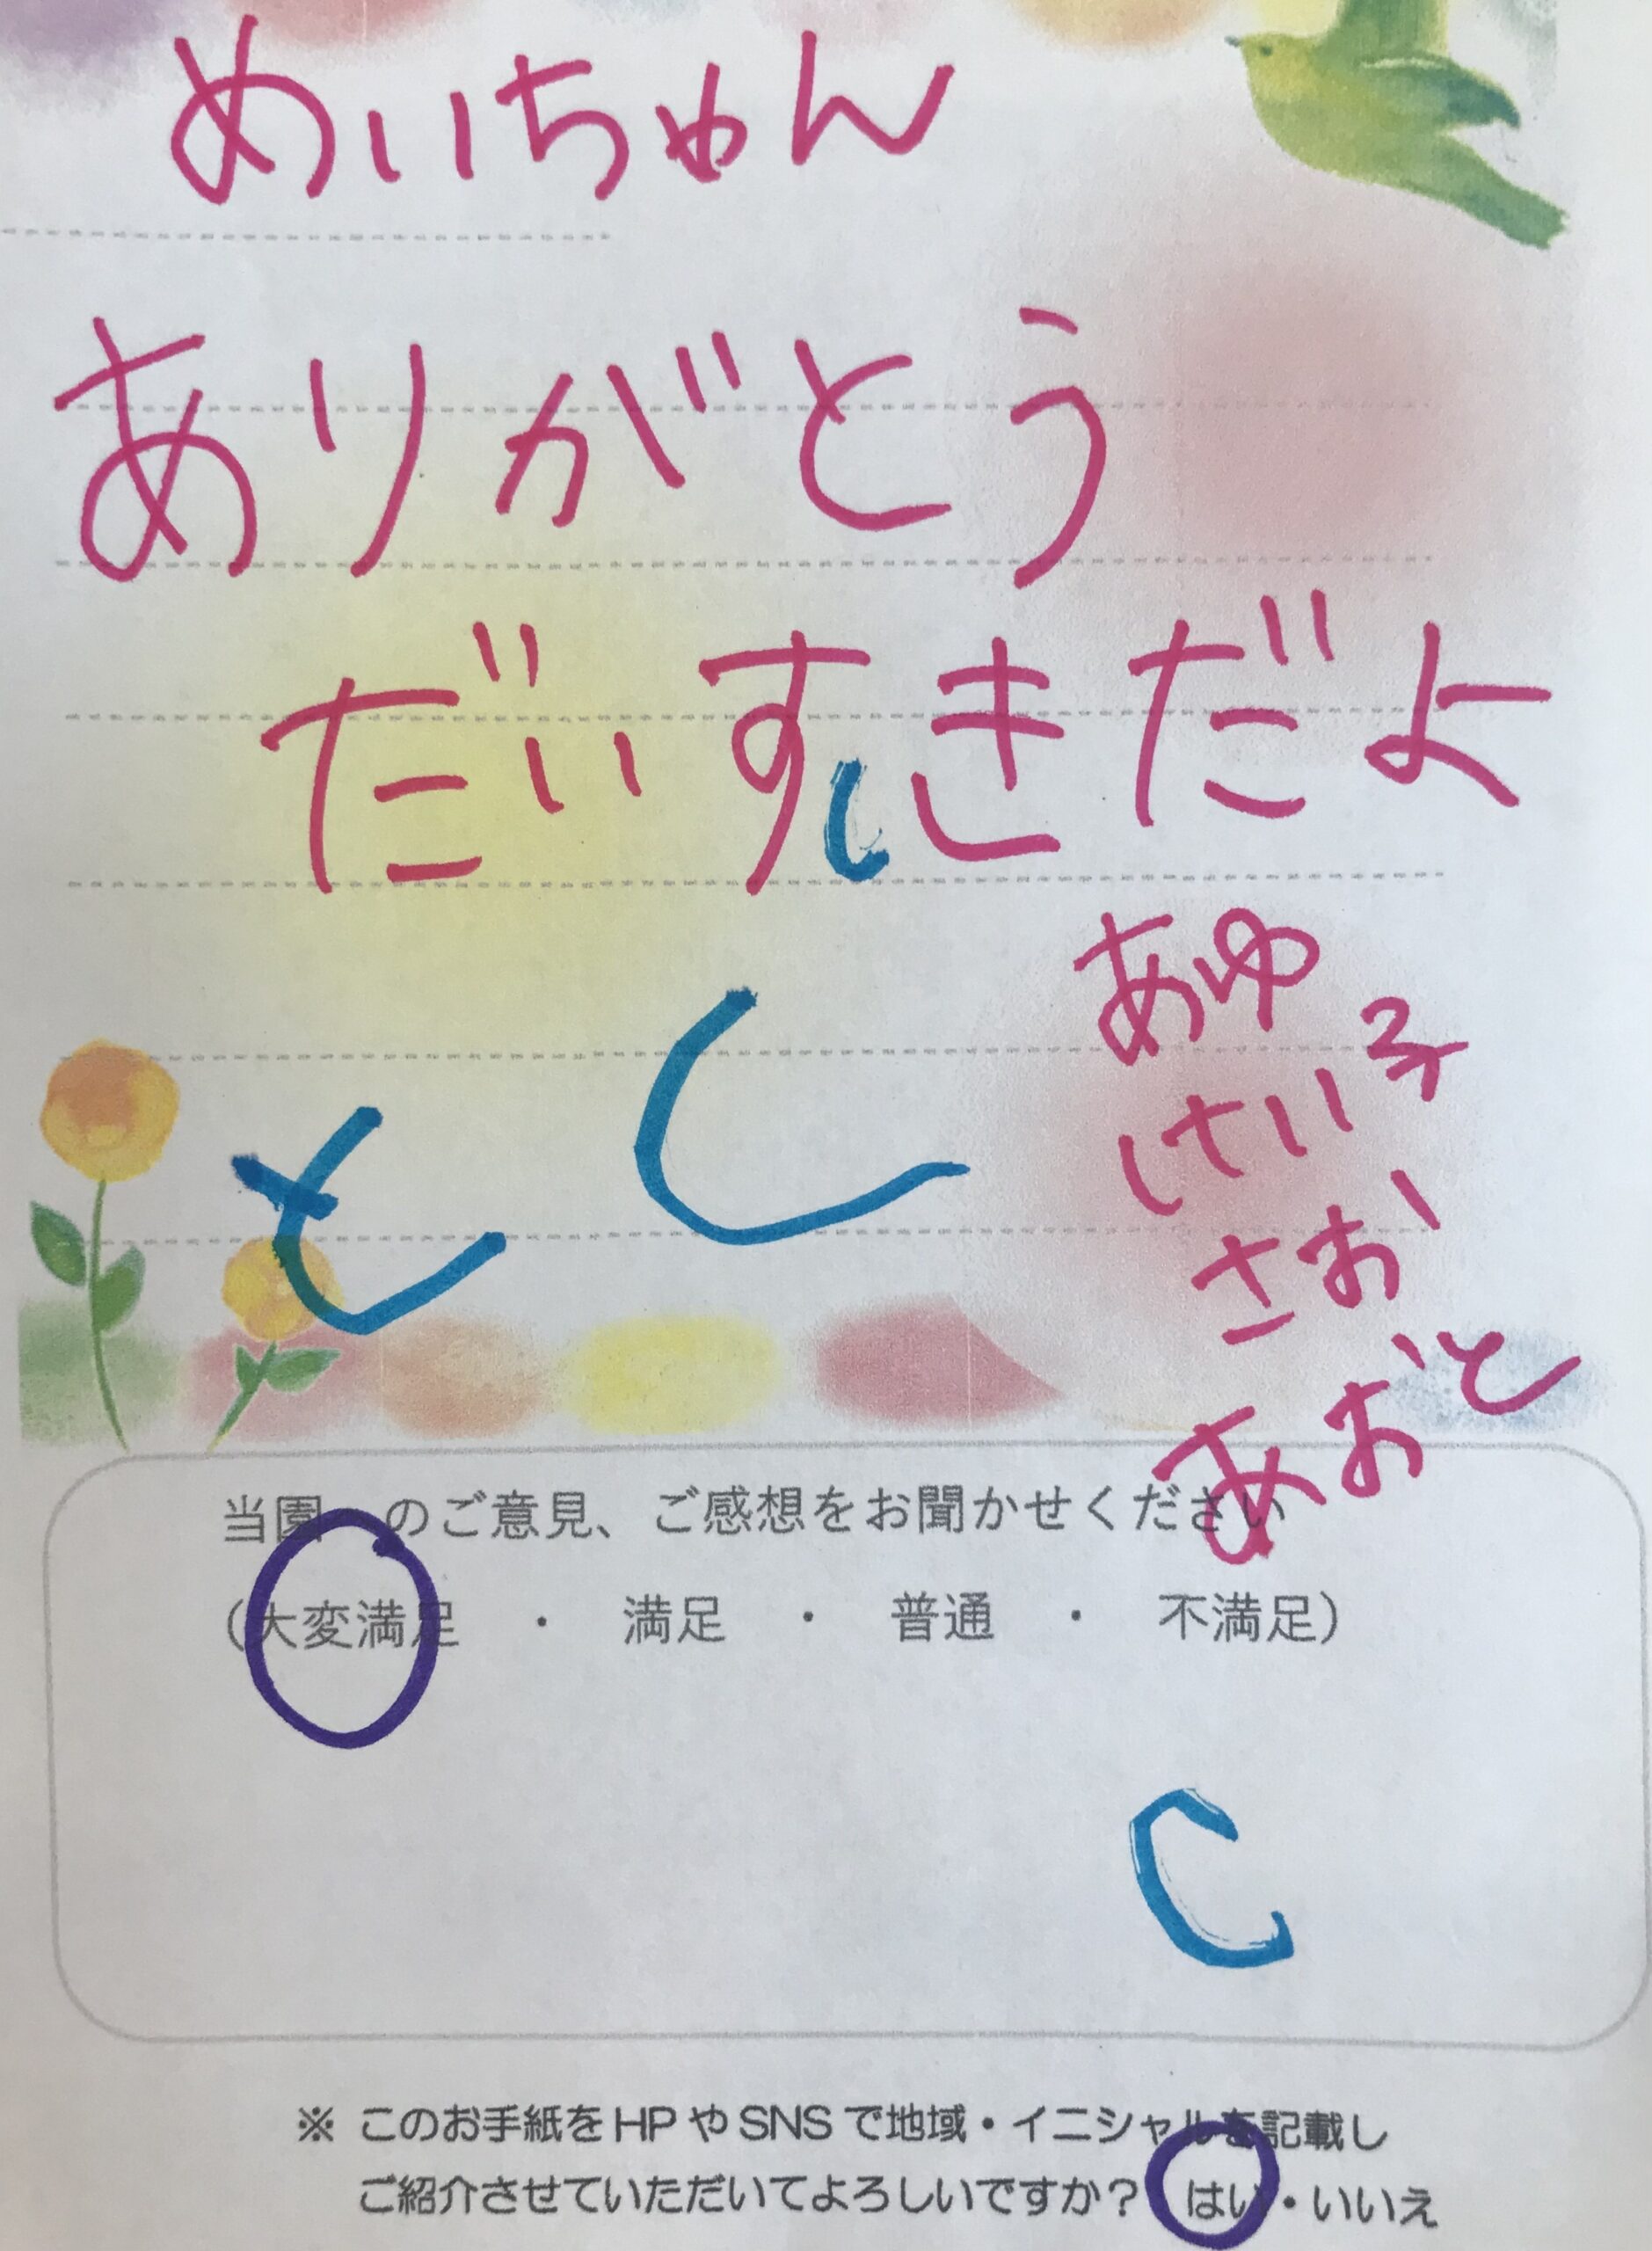 めいちゃん
ありがとう
だいすきだよ
し
あゆ子
けいさお
あおと
し
と
当園 のご意見、ご感想をお聞かせください
(大変満足 ・ 満足 ・ 普通 ・ 不満足)
※ このお手紙をHPやSNSで地域・イニシャルを記載し
ご紹介させていただいてよろしいですか? はい・いいえ